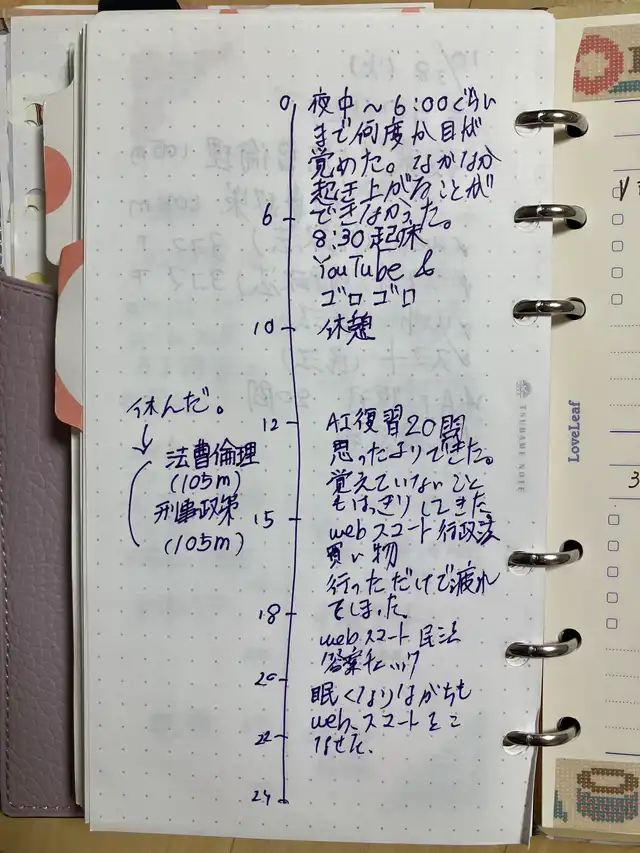 0
夜中〜6:00ぐらい
まで何度か目が
覚めた。なかなか
起き上がることが
6
できなかった。
8:30起床
YouTube &
ゴロゴロ
10
休憩
休んだ。
法曹倫理
(105m)
刑事政策
(105m)
12
AI復習20問
思ったよりできた。
覚えていないこと
もはっきりしてきた
15
webスコート行政法
買い物
行っただけで疲れ
てしまった。
18
webスコート民法
答案チェック
20
眠くなりながらも
22
webスコートをこ
なせた.
24
TSUBAME NOTE
LoveLeaf